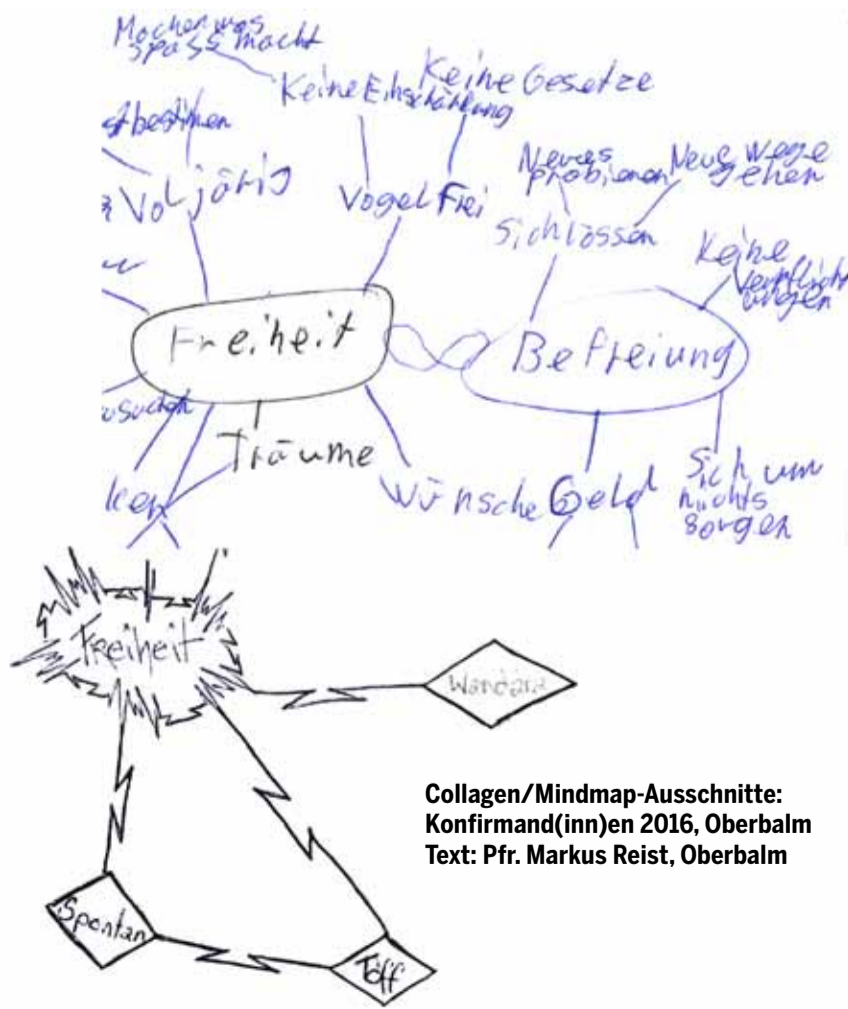 Machen was
spass macht
Keine Einschänkung
Keine Gesetze
stbestimen
Voljärig
Vogel Frei
Neues
probieren
Neue Wege
gehen
Sich lössen
Keine
Verpflicht
ungen
Freiheit
Befreiung
Träume
ken
Wünsche
Geld
Sich um
nichts
sorgen
Freiheit
Wandära
Collagen/Mindmap-Ausschnitte:
Konfirmand(inn)en 2016, Oberbalm
Text: Pfr. Markus Reist, Oberbalm
Spontan
Töff